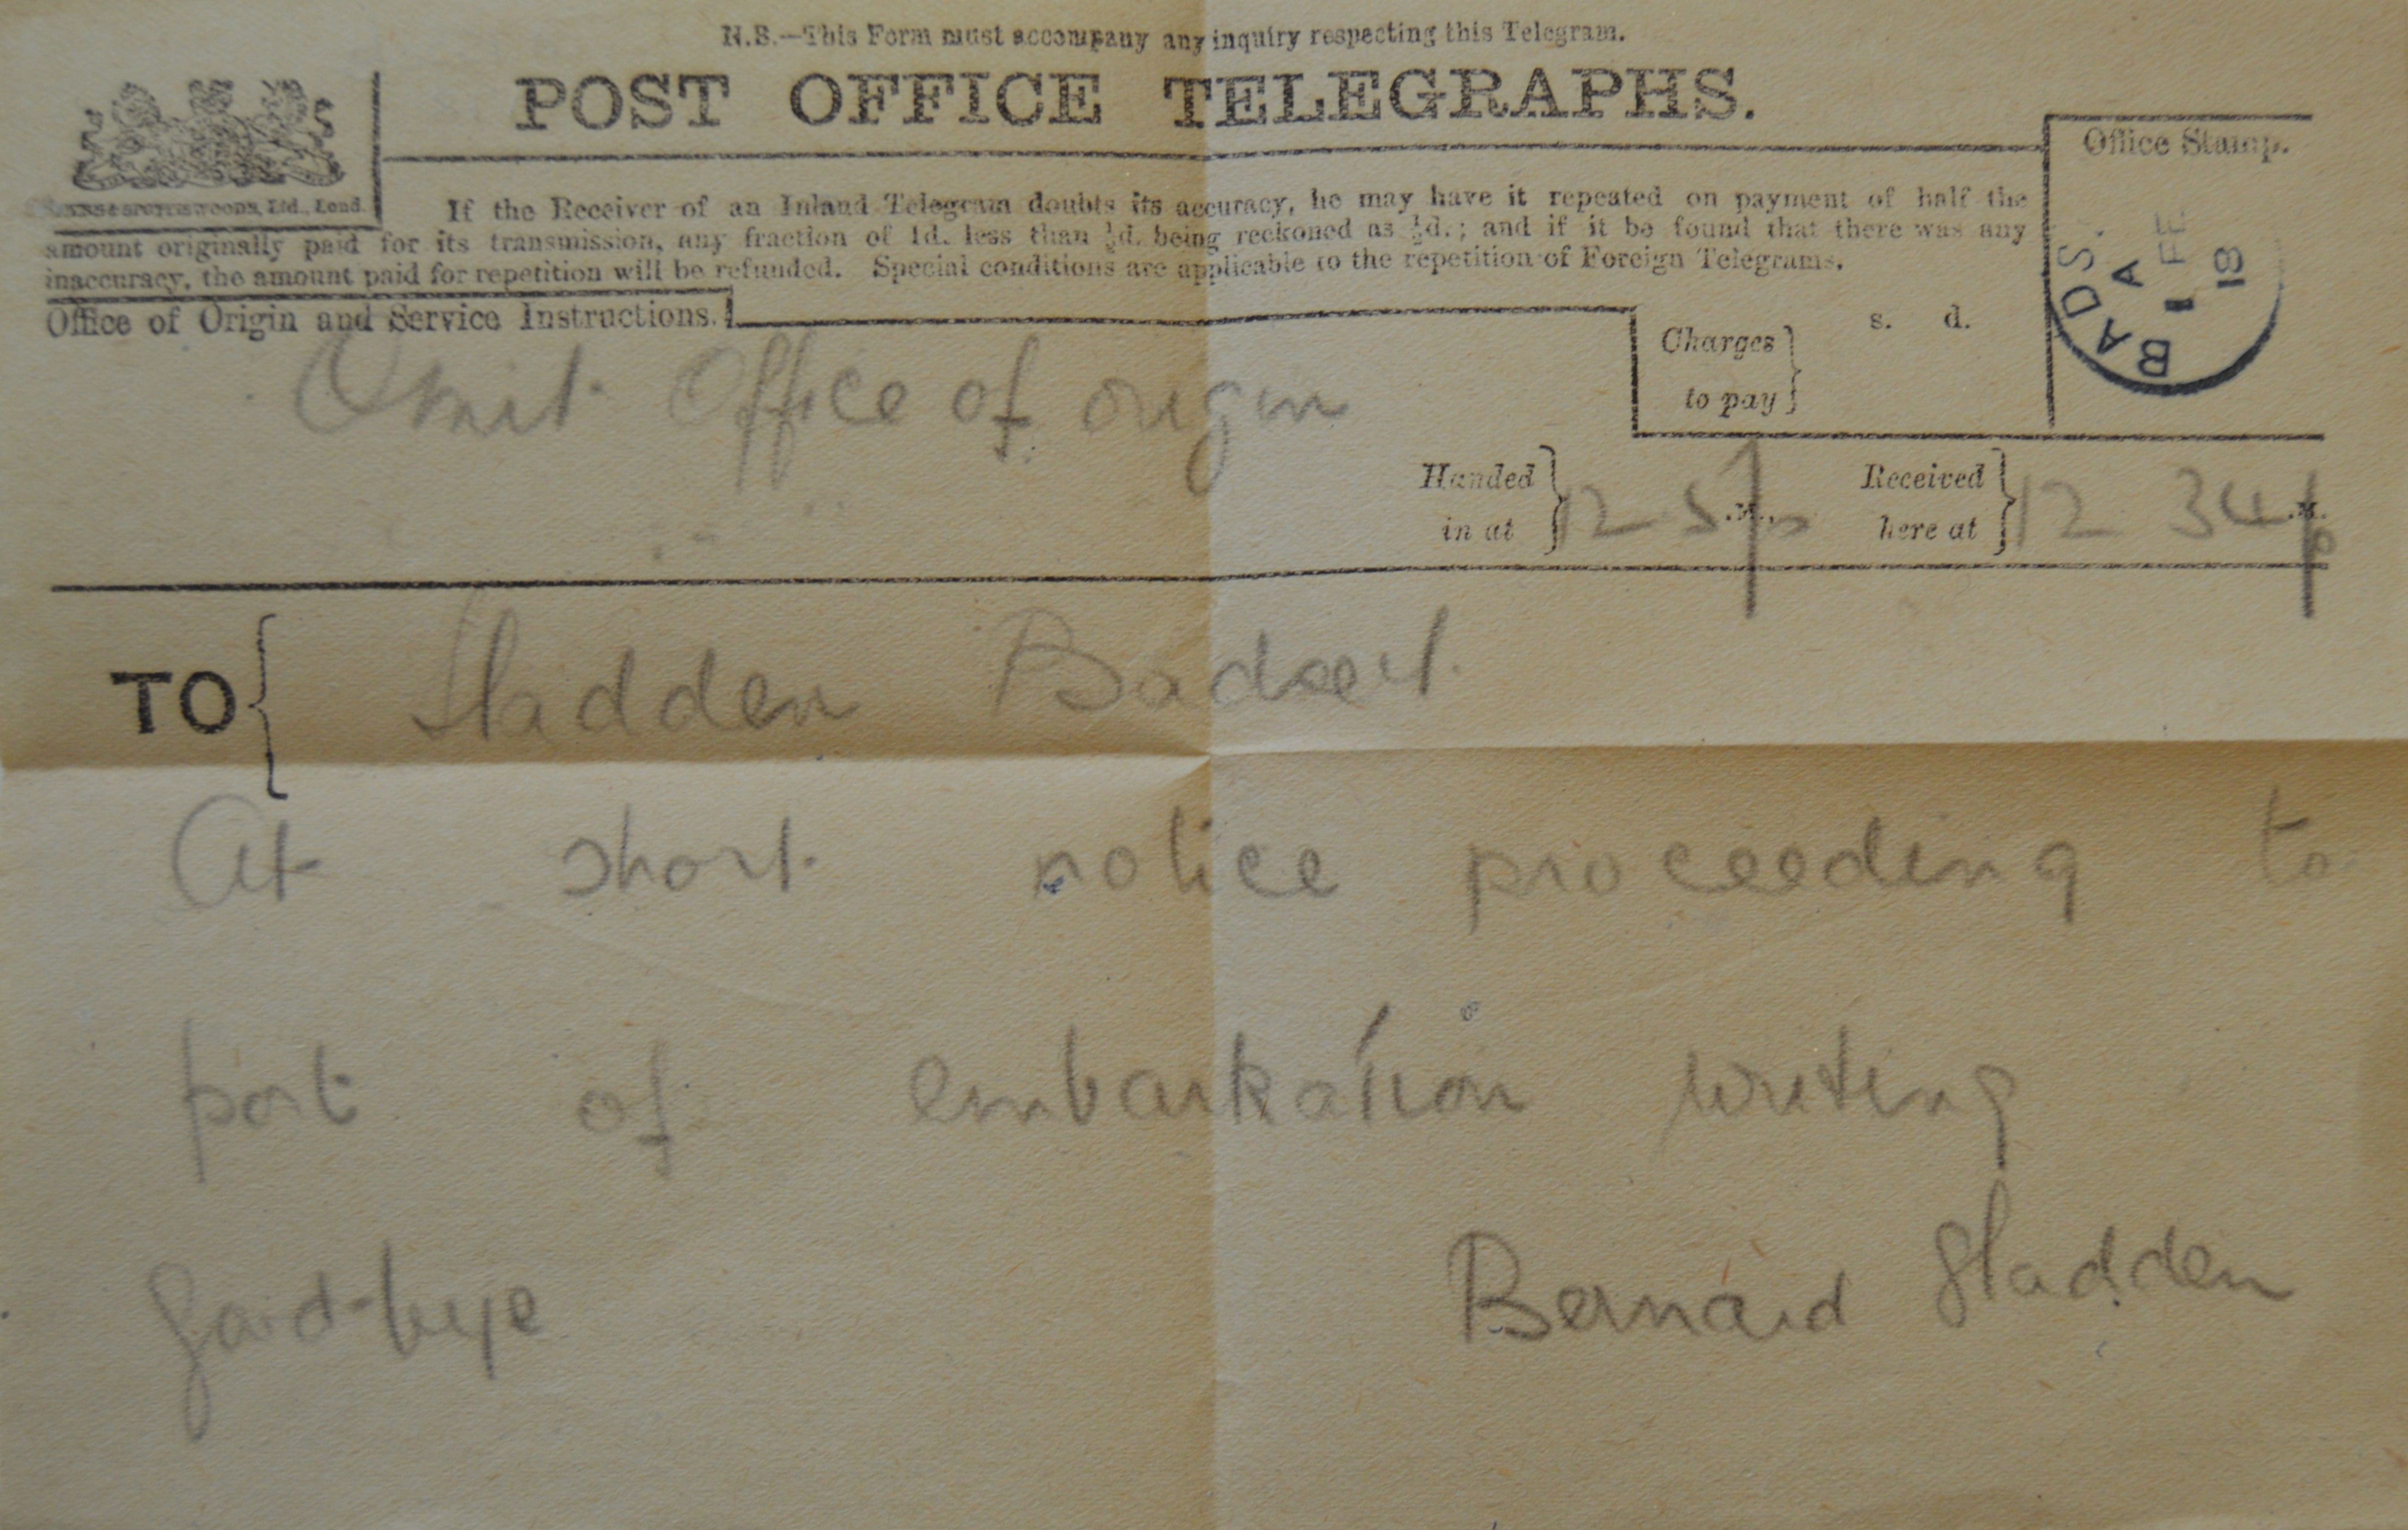 N.B.—This Form must accompany any inquiry respecting this Telegram.
POST OFFICE TELEGRAPHS.
Office Stamp.
If the Receiver of an Inland Telegram doubts its accuracy, he may have it repeated on payment of half the
amount originally paid for its transmission, any fraction of 1d. less than ½d. being reckoned as ½d.; and if it be found that there was any
inaccuracy, the amount paid for repetition will be refunded. Special conditions are applicable to the repetition of Foreign Telegrams.
BADS
A
1 FE
18
Office of Origin and Service Instructions.
Charges to pay
s. d.
Omit Office of origin
Handed in at 12 5
Received here at 12 34
TO Sladden Badsey
At short notice proceeding to
port of embarkation writing
Good-bye Bernard Sladden